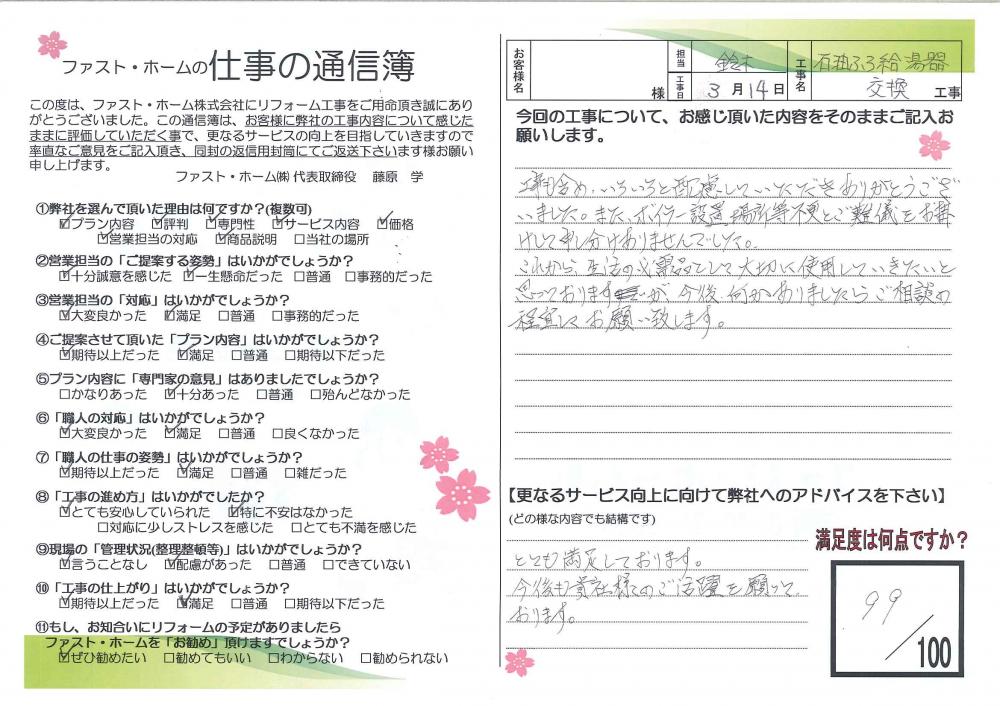 ファスト・ホームの仕事の通信簿
この度は、ファスト・ホーム株式会社にリフォーム工事をご用命頂き誠にあり
がとうございました。この通信簿は、お客様に弊社の工事内容について感じた
ままに評価していただく事で、更なるサービスの向上を目指していきますので
率直なご意見をご記入頂き、同封の返信用封筒にてご返送下さいます様お願い
申し上げます。
ファスト・ホーム㈱ 代表取締役 藤原 学
①弊社を選んで頂いた理由は何ですか?(複数可)
☑プラン内容 ☑評判 ☑専門性 ☑サービス内容 ☑価格
☑営業担当の対応 ☑商品説明 □当社の場所
②営業担当の「ご提案する姿勢」はいかがでしょうか?
☑十分誠意を感じた ☑一生懸命だった □普通 □事務的だった
③営業担当の「対応」はいかがでしょうか?
☑大変良かった ☑満足 □普通 □事務的だった
④ご提案させて頂いた「プラン内容」はいかがでしょうか?
☑期待以上だった ☑満足 □普通 □期待以下だった
⑤プラン内容に「専門家の意見」はありましたでしょうか?
□かなりあった ☑十分あった □普通 □殆んどなかった
⑥「職人の対応」はいかがでしょうか?
☑大変良かった ☑満足 □普通 □良くなかった
⑦「職人の仕事の姿勢」はいかがでしょうか?
☑期待以上だった ☑満足 □普通 □雑だった
⑧「工事の進め方」はいかがでしたか?
☑とても安心していられた ☑特に不安はなかった
□対応に少しストレスを感じた □とても不満を感じた
⑨現場の「管理状況(整理整頓等)」はいかがでしょうか?
☑言うことなし ☑配慮があった □普通 □できていない
⑩「工事の仕上がり」はいかがでしょうか?
☑期待以上だった ☑満足 □普通 □期待以下だった
⑪もし、お知合いにリフォームの予定がありましたら
ファスト・ホームを「お勧め」頂けますでしょうか?
☑ぜひ勧めたい □勧めてもいい □わからない □勧められない
お客様名 様 担当 鈴木 工事日 3月14日 工事名 石油ふろ給湯器
交換 工事
今回の工事について、お感じ頂いた内容をそのままご記入お
願いします。
工事も含め、いろいろと配慮していただきありがとうござ
いました。また、ボイラー設置場所等不便とご難儀をお掛
けして申し分けありませんでした。
これから生活の必需品として大切に使用していきたいと
思っておりますが、今後、何かありましたらご相談の
程宜しくお願い致します。
【更なるサービス向上に向けて弊社へのアドバイスを下さい】
(どの様な内容でも結構です)
とても満足しております。
今後も貴社様のご活躍を願って
おります。
満足度は何点ですか?
99/100